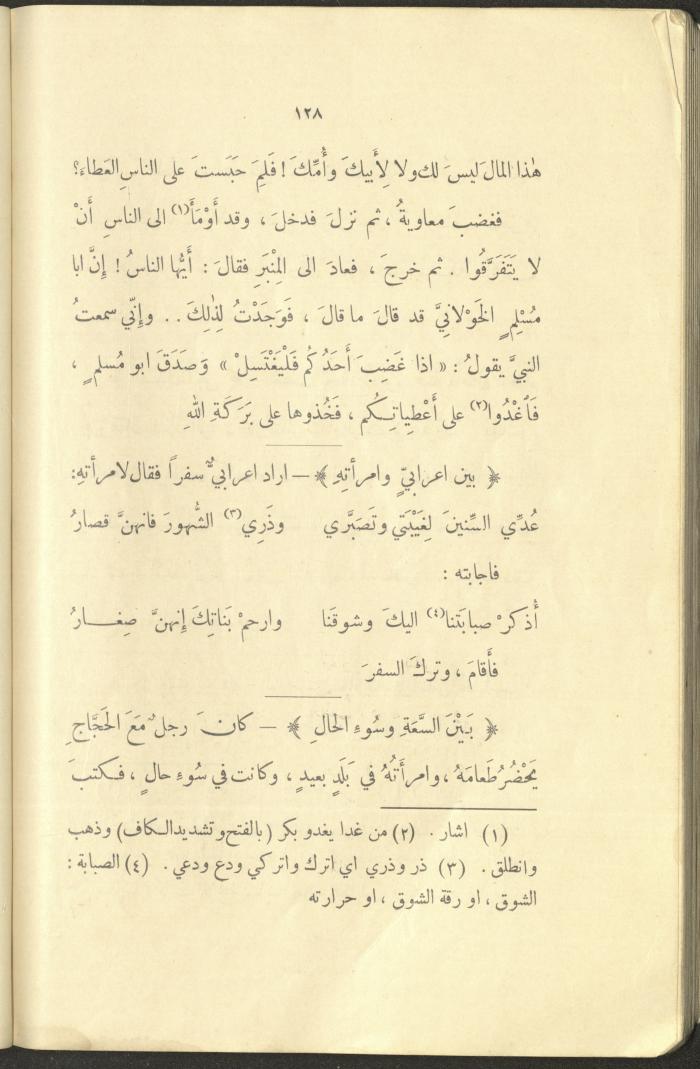 ١٢٨
هٰذا المال ليسَ لك ولا لِأَبيكَ وأُمِّكَ ! فَلِمَ حَبَستَ على الناسِ العَطاءَ؟
فغضبَ معاويةُ ، ثم نزلَ فدخلَ ، وقد أَوْمَأَ(١) الى الناسِ أَنْ
لا يَتَفَرَّقُوا . ثم خرجَ ، فعادَ الى المِنْبَرِ فقالَ : أَيُّها الناسُ ! إِنَّ ابا
مُسْلِمٍ الخَوْلانيَّ قد قالَ ما قالَ ، فَوَجَدْتُ لِذٰلِكَ . . وإِنّي سمعتُ
النبيَّ يقولُ : « اذا غَضِبَ أَحَدُكُم فَلْيَغْتَسِلْ » وَصَدَقَ ابو مُسلمٍ ،
فَاغْدُوا(٢) على أَعْطِياتِكُم ، فَخُذوها على بَرَكَةِ اللهِ
﴿ بين اعرابيٍّ وامرأتِهِ ﴾ — اراد اعرابيٌّ سفراً فقال لامرأتِهِ:
عُدِّي السِّنينَ لِغَيْبَتي وتَصَبَّري وذَرِي(٣) الشُّهورَ فانهنَّ قصارُ
فاجابته :
أُذكرْ صبابَتَنا(٤) اليكَ وشوقَنا وارحمْ بَناتِكَ إِنهنَّ صِغــارُ
فأَقامَ ، وتركَ السفرَ
﴿ بَيْنَ السَّعَةِ وسُوءِ الحالِ ﴾ — كانَ رجلٌ مَعَ الحَجَّاجِ
يَحْضُرُ طَعامَهُ ، وامرأَتُهُ في بَلَدٍ بعيدٍ ، وكانت في سُوءِ حالٍ ، فكتبَ
(١) اشار . (٢) من غدا يغدو بكر (بالفتح وتشديد الكاف) وذهب
وانطلق . (٣) ذر وذري اي اترك واتركي ودع ودعي . (٤) الصبابة :
الشوق ، او رقة الشوق ، او حرارته